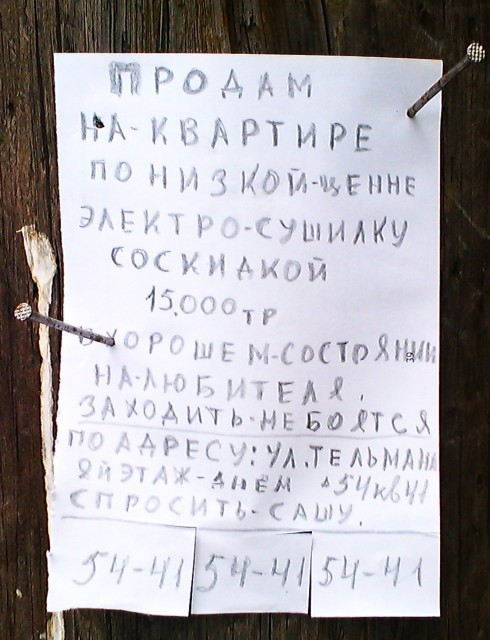 ПРОДАМ
НА-КВАРТИРЕ
ПО НИЗКОЙ-ЦЕННЕ
ЭЛЕКТРО-СУШИЛКУ
СОСКИДКОЙ
15.000 ТР
В ХОРОШЕМ-СОСТОЯНИИ
НА-ЛЮБИТЕЛЯ.
ЗАХОДИТЬ-НЕ БОЯТСЯ
ПО АДРЕСУ: УЛ. ТЕЛЬМАНА
ЯЙ ЭТАЖ-ДНЁМ д54кв41
СПРОСИТЬ-САШУ.
54-41 54-41 54-41